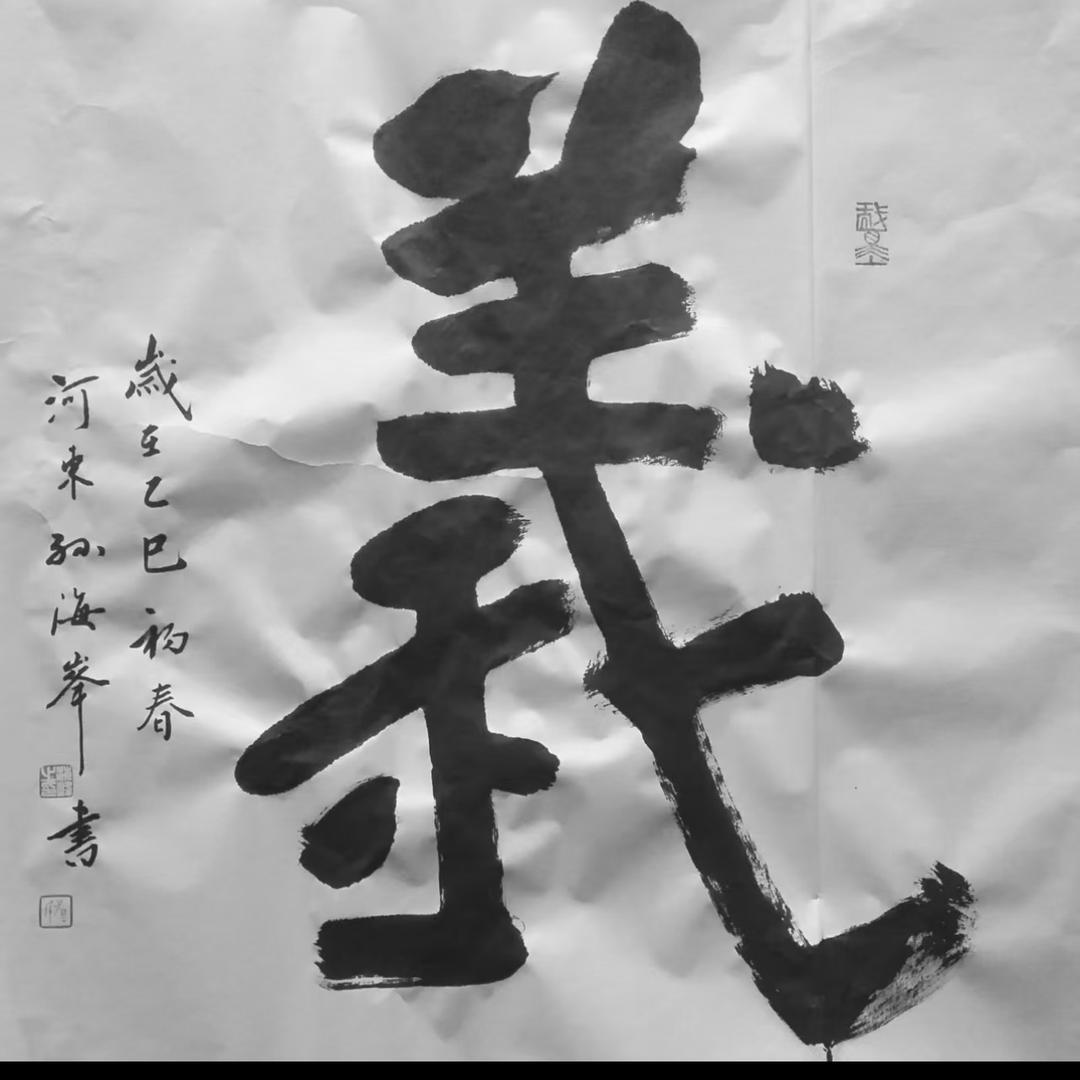 義
歲在乙巳初春
河東孫海峯書